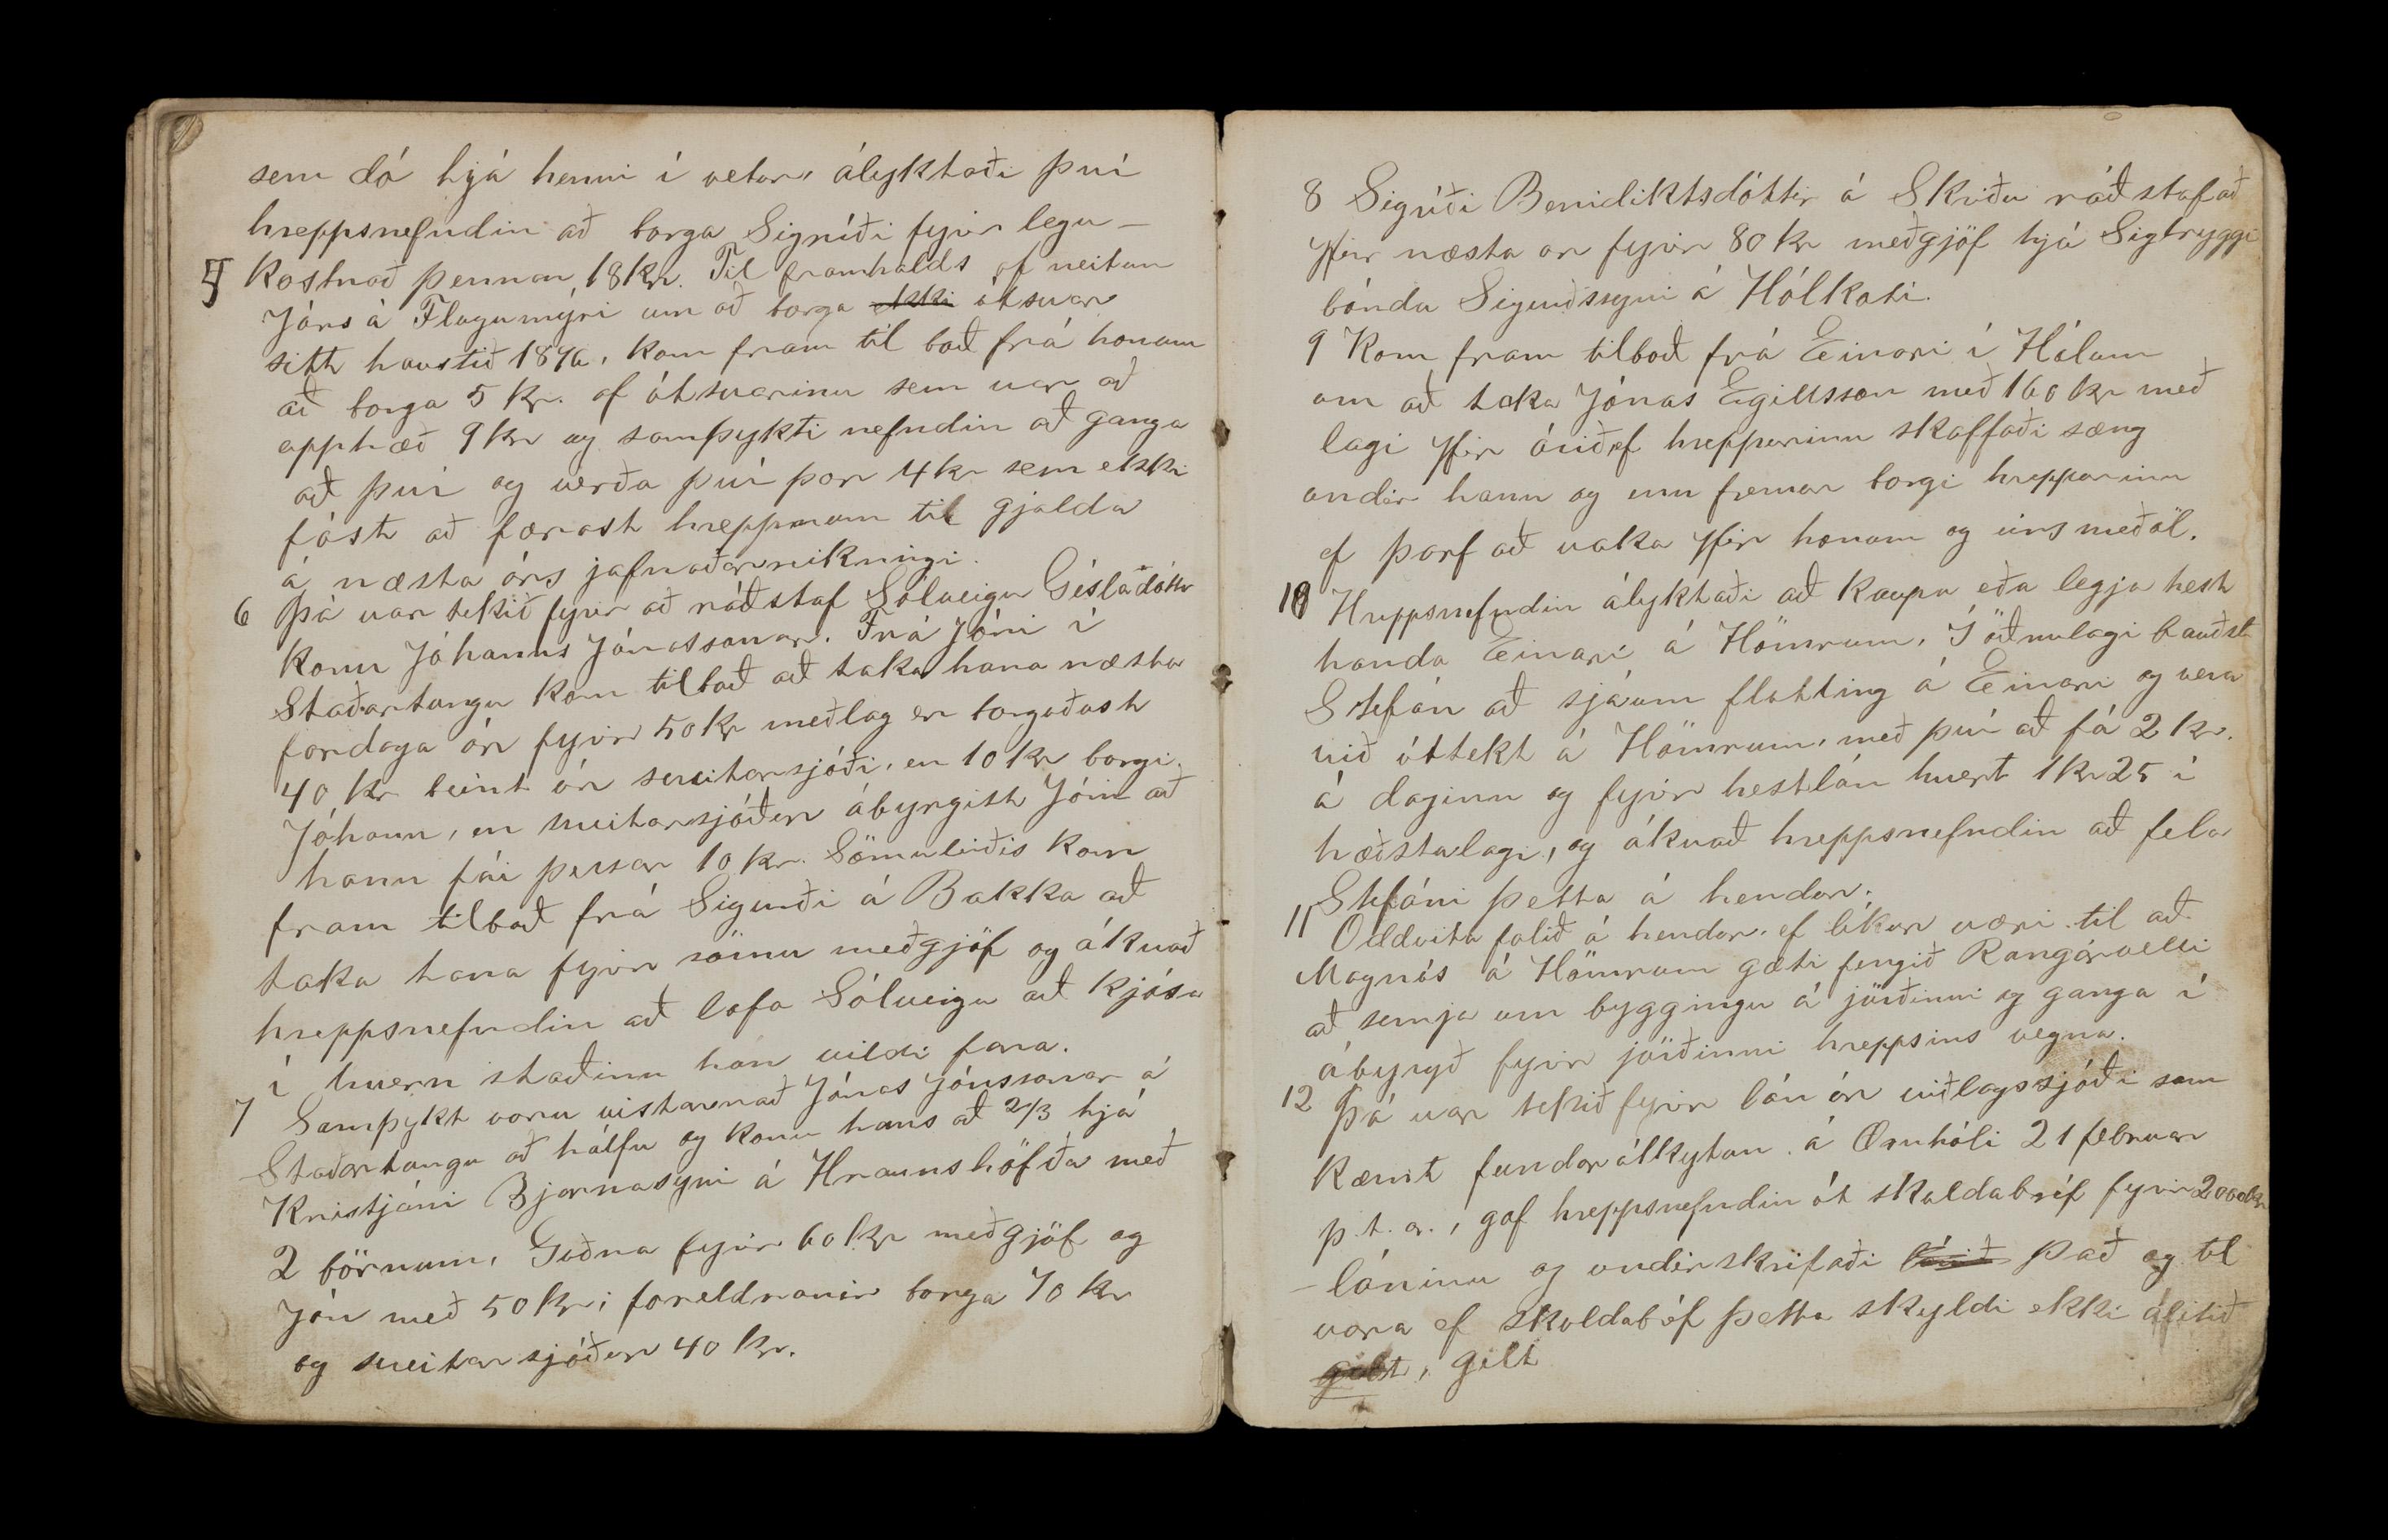 sem dó hjá henni í vetur, ályktaði því
hreppsnefndin að borga Sigríði fyrir legu-
kostnað þennan, 18 kr. Til framhalds af neitun
5 Jóns á Flugumýri um að borga ekki útsvar
sitt haustið 1896, kom fram til boð frá honum
að borga 5 kr. af útsvarinu sem var að
upphæð 9 kr og samþykti nefndin að ganga
að því og verða því þar 4 kr sem ekki
fást að færast hreppnum til gjalda
á næsta árs jafnaðarreikningi.
6 Þá var tekið fyrir að ráðstaf Sólveigu Gísladóttr
konu Jóhanns Jónassonar. Frá Jóni í
Staðartungu kom tilboð að taka hana næsta
fardaga ár fyrir 50 kr meðlag er borgaðast
40 kr beint úr sveitarsjóði, en 10 kr borgi
Jóhann, en sveitarsjóður ábyrgist Jóni að
hann fái þessar 10 kr. Sömuleiðis kom
fram tilboð frá Sigurði á Bakka að
taka hana fyrir sömu meðgjöf og ákvað
hreppsnefndin að lofa Sólveigu að kjósa
í hvern staðinn hún vildi fara.
7 Samþykt voru vistarnað Jónas Jónssonar á
Staðartungu að hálfu og konu hans að 2/3 hjá
Kristjáni Bjarnasyni á Hraunshöfða með
2 börnum, Guðna fyrir 60 kr meðgjöf og
Jón með 50 kr; foreldranir borga 70 kr
og sveitarsjóður 40 kr.
8 Sigríði Benidiktsdóttir á Skriðu ráðstafað
yfir næsta ár fyrir 80 kr meðgjöf hjá Sigtryggi
bónda Sigurðssyni á Hólkoti.
9 Kom fram tilboð frá Einari í Hólum
um að taka Jónas Egillsson með 160 kr með
lagi yfir árið ef hreppurinn skaffaði sæng
undir hann og enn fremur borgi hreppurinn
ef þarf að vaka yfir honum og eins meðöl.
10 Hreppsnefndin ályktaði að kaupa eða legja hest
handa Einari á Hömrum, Í öðrulagi bauðst
Stefán að sjá um flutting á Einari og vera
við úttekt á Hömrum, með því að fá 2 kr.
á daginn og fyrir hestlán hvert 1 kr 25 í
hæðstalagi, og ákvað hreppsnefndin að fela
Stefáni þetta á hendur.
11 Oddvita falið á hendur, ef líkur væri til að
Magnús á Hömrum gæti fengið Rangárvelli
að semja um byggingu á jörðinni og ganga í
ábyrgð fyrir jörðinni hreppsins vegna.
12 Þá var tekið fyrir lán úr viðlagssjóði sam
kæmt fundarálkytun á Ásnhóli 21 februar
þ. t. á., gaf hreppsnefndin út skuldabréf fyrir 2000 kr
-láninu og undirskrifaði lánið það og til
vara ef skuldabéf þetta skyldi ekki álitið
gilt, gilt